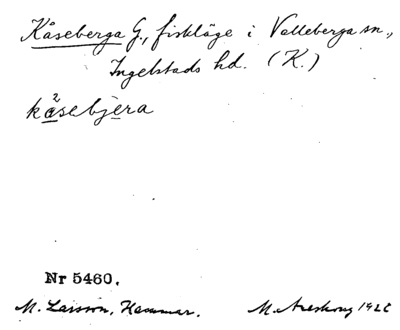 Kåseberga G., fiskläge i Valleberga sn.,
Ingelstads hd. (K.)
kåsebjera
Nr 5460.
M. Larsson, Hammar. M. Areskoug